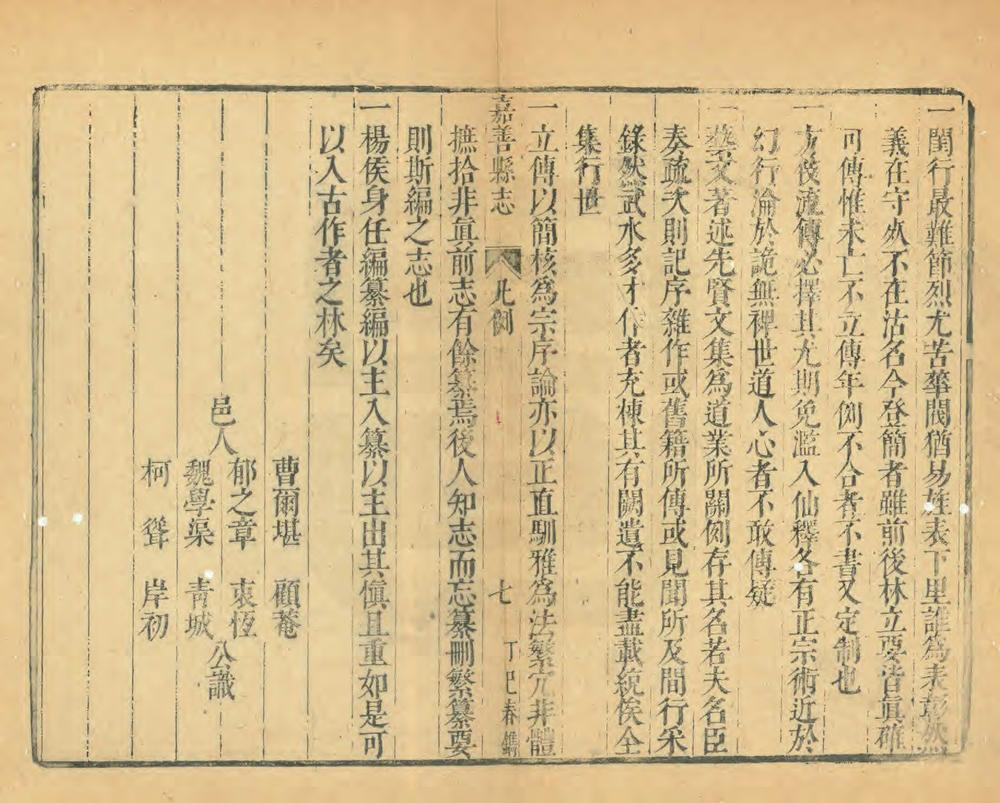 一閨行最難節烈尤苦華閥猶易旌表下里誰為表彰然
義在守貞不在沽名今登簡者雖前後林立要皆眞確
可傳惟未亡不立傳年例不合者不書又定制也
一方技流傳必擇其尤期免濫入仙釋各有正宗術近於
幻行淪於詭無裨世道人心者不敢傳疑
一藝文著述先賢文集爲道業所關例存其名若夫名臣
奏疏次則記序雜作或舊籍所傳或見聞所及間行采
錄然武水多才作者充棟其有闕遺不能盡載統俟全
集行世
一立傳以簡核爲宗序論亦以正直馴雅爲法繁冗非體
嘉善縣志 凡例 七 丁巳春鐫
摭拾非眞前志有餘纂焉後人知志而忘纂刪繁纂要
則斯編之志也
一楊侯身任編纂編以主入纂以主出其愼且重如是可
以入古作者之林矣
曹爾堪 顧菴
邑人 郁之章 衷恆 公識
魏學渠 靑城
柯聳 岸初